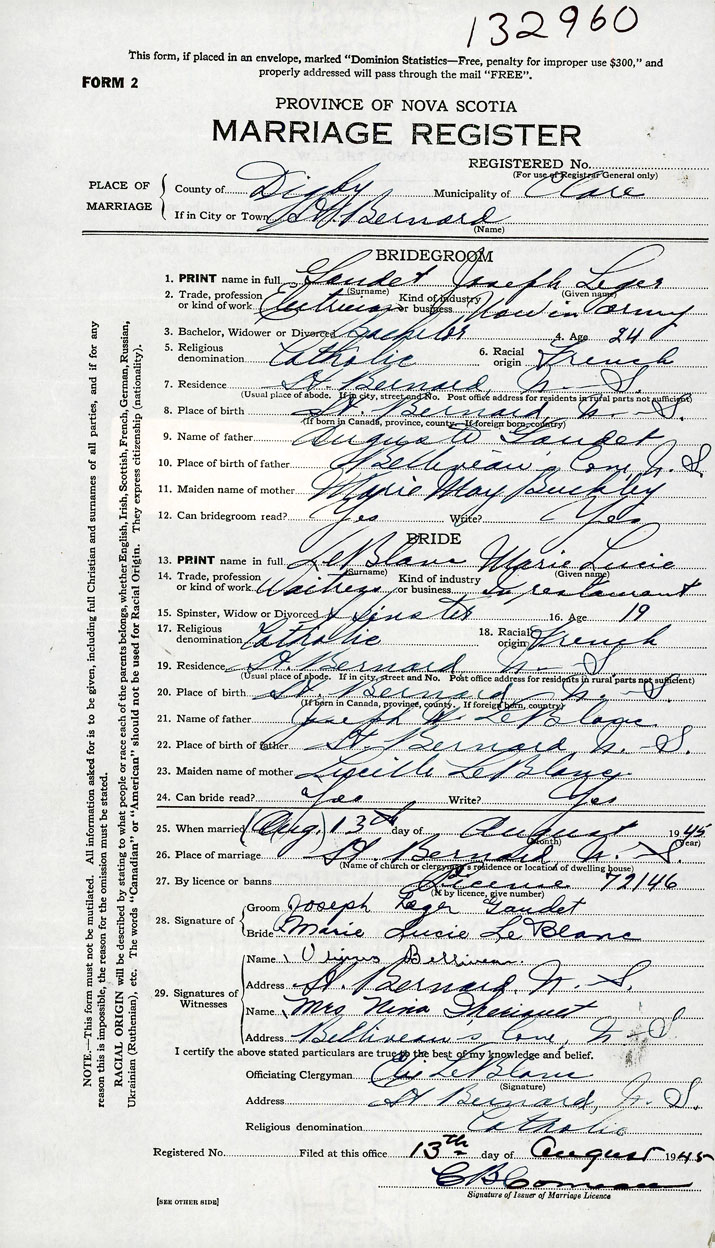 132960
This form, if placed in an envelope, marked "Dominion Statistics—Free, penalty for improper use $300," and
properly addressed will pass through the mail "FREE".
FORM 2
PROVINCE OF NOVA SCOTIA
MARRIAGE REGISTER
REGISTERED No.
(For use of Registrar General only)
PLACE OF MARRIAGE
County of Digby Municipality of Clare
If in City or Town St. Bernard
(Name)
BRIDEGROOM
1. PRINT name in full Gaudet Joseph Leger
(Surname) (Given name)
2. Trade, profession or kind of work Electrician Kind of industry or business Now in army
3. Bachelor, Widower or Divorced Bachelor 4. Age 24
5. Religious denomination Catholic 6. Racial origin French
7. Residence St. Bernard, N. S.
(Usual place of abode. If in city, street and No. Post office address for residents in rural parts not sufficient)
8. Place of birth St. Bernard, N. S.
(If born in Canada, province, county. If foreign born, country)
9. Name of father August Gaudet
10. Place of birth of father Belliveau's Cove, N. S.
11. Maiden name of mother Marie May Buckley
12. Can bridegroom read? Yes Write? Yes
BRIDE
13. PRINT name in full LeBlanc Marie Lucie
(Surname) (Given name)
14. Trade, profession or kind of work Waitress Kind of industry or business In restaurant
15. Spinster, Widow or Divorced Spinster 16. Age 19
17. Religious denomination Catholic 18. Racial origin French
19. Residence St. Bernard N. S.
(Usual place of abode. If in city, street and No. Post office address for residents in rural parts not sufficient)
20. Place of birth St. Bernard N. S.
(If born in Canada, province, county. If foreign born, country)
21. Name of father Joseph LeBlanc
22. Place of birth of father St. Bernard, N. S.
23. Maiden name of mother Lucille LeBlanc
24. Can bride read? Yes Write? Yes
25. When married (Aug.) 13th day of August 1945
(Month) (Year)
26. Place of marriage St Bernard N. S.
(Name of church or clergyman's residence or location of dwelling house)
27. By licence or banns License 72146
(If by licence, give number)
28. Signature of
Groom Joseph Leger Gaudet
Bride Marie Lucie Le Blanc
29. Signatures of Witnesses
Name Belliveau
Address St. Bernard, N. S.
Name Mrs Nina
Address Belliveau's Cove, N. S.
I certify the above stated particulars are true to the best of my knowledge and belief.
Officiating Clergyman LeBlanc
(Signature)
Address St Bernard, N. S.
Religious denomination Catholic
Registered No. Filed at this office 13th day of August 1945
C B Comeau
Signature of Issuer of Marriage Licence
[SEE OTHER SIDE]
NOTE.—This form must not be mutilated. All information asked for is to be given, including full Christian and surnames of all parties, and if for any
reason this is impossible, the reason for the omission must be stated.
RACIAL ORIGIN will be described by stating to what people or race each of the parents belongs, whether English, Irish, Scottish, French, German, Russian,
Ukrainian (Ruthenian), etc. The words "Canadian" or "American" should not be used for Racial Origin. They express citizenship (nationality).